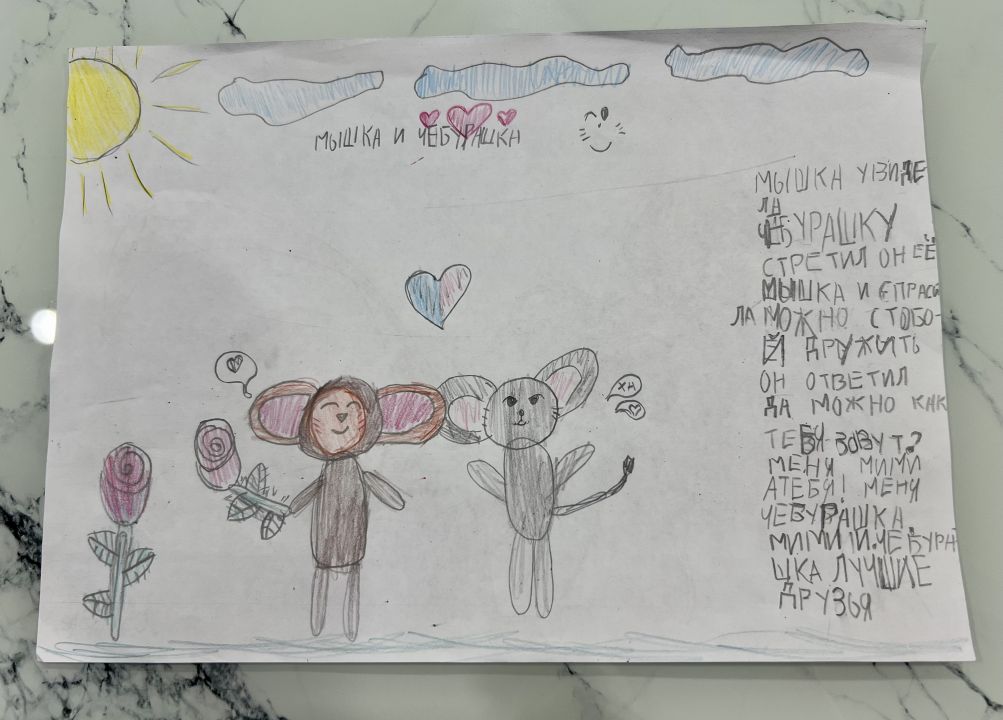 МЫШКА И ЧЕБУРАШКА
МЫШКА УВИДЕ
ЛА
ЧЕБУРАШКУ
СТРЕТИЛ ОН ЕЁ
МЫШКА И СПРАСИ
ЛА МОЖНО СТОБО-
Й ДРУЖИТЬ
ОН ОТВЕТИЛ
ДА МОЖНО КАК
ТЕБЯ ЗОВУТ?
МЕНЯ МИМИ
АТЕБЯ! МЕНЯ
ЧЕБУРАШКА
МИМИ И ЧЕБУРА
ШКА ЛУЧШИЕ
ДРУЗЬЯ
ХА